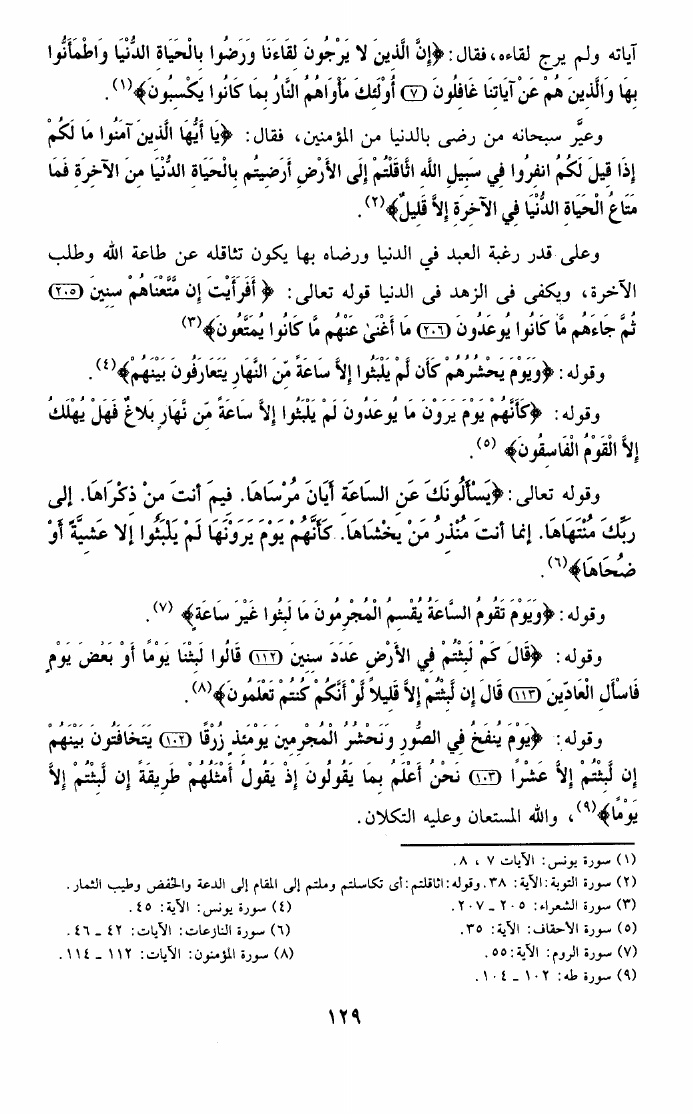 آياته ولم يرج لقاءه، فقال: ﴿إِنَّ الَّذِينَ لا يَرْجُونَ لِقَاءَنَا وَرَضُوا بِالْحَيَاةِ الدُّنْيَا وَاطْمَأَنُّوا
بِهَا وَالَّذِينَ هُمْ عَنْ آيَاتِنَا غَافِلُونَ (٧) أُوْلَئِكَ مَأْوَاهُمُ النَّارُ بِمَا كَانُوا يَكْسِبُونَ﴾(١).
وعيَّر سبحانه من رضى بالدنيا من المؤمنين، فقال: ﴿يَا أَيُّهَا الَّذِينَ آمَنُوا مَا لَكُمْ
إِذَا قِيلَ لَكُمُ انفِرُوا فِي سَبِيلِ اللَّهِ اثَّاقَلْتُمْ إِلَى الأَرْضِ أَرَضِيتُم بِالْحَيَاةِ الدُّنْيَا مِنَ الآخِرَةِ فَمَا
مَتَاعُ الْحَيَاةِ الدُّنْيَا فِي الآخِرَةِ إِلاَّ قَلِيلٌ﴾(٢).
وعلى قدر رغبة العبد في الدنيا ورضاه بها يكون تثاقله عن طاعة الله وطلب
الآخرة، ويكفى فى الزهد فى الدنيا قوله تعالى: ﴿أَفَرَأَيْتَ إِن مَّتَّعْنَاهُمْ سِنِينَ (٢٠٥)
ثُمَّ جَاءَهُم مَّا كَانُوا يُوعَدُونَ (٢٠٦) مَا أَغْنَىٰ عَنْهُم مَّا كَانُوا يُمَتَّعُونَ﴾(٣)
وقوله: ﴿وَيَوْمَ يَحْشُرُهُمْ كَأَن لَّمْ يَلْبَثُوا إِلاَّ سَاعَةً مِّنَ النَّهَارِ يَتَعَارَفُونَ بَيْنَهُمْ﴾(٤).
وقوله: ﴿كَأَنَّهُمْ يَوْمَ يَرَوْنَ مَا يُوعَدُونَ لَمْ يَلْبَثُوا إِلاَّ سَاعَةً مِّن نَّهَارٍ بَلاغٌ فَهَلْ يُهْلَكُ
إِلاَّ الْقَوْمُ الْفَاسِقُونَ﴾ (٥).
وقوله تعالى: ﴿يَسْأَلُونَكَ عَنِ السَاعَةِ أَيَانَ مُرْسَاهَا. فِيمَ أنتَ مِنْ ذِكْرَاهَا. إلى
رَبِّكَ مُنْتَهَاهَا. إنما أنتَ مُنْذِرُ مَنْ يخْشَاهَا. كَأَنَّهُمْ يَوْمَ يَرَوْنَهَا لَمْ يَلْبَثُوا إلا عَشِيَّةً أَوْ
ضُحَاهَا﴾(٦).
وقوله: ﴿وَيَوْمَ تَقُومُ السَّاعَةُ يُقْسِمُ الْمُجْرِمُونَ مَا لَبِثُوا غَيْرَ سَاعَةٍ﴾ (٧).
وقوله: ﴿قَالَ كَمْ لَبِثْتُمْ فِي الأَرْضِ عَدَدَ سِنِينَ (١١٢) قَالُوا لَبِثْنَا يَوْمًا أَوْ بَعْضَ يَوْمٍ
فَاسْأَلِ الْعَادِّينَ (١١٣) قَالَ إِن لَّبِثْتُمْ إِلاَّ قَلِيلاً لَّوْ أَنَّكُمْ كُنتُمْ تَعْلَمُونَ﴾(٨).
وقوله: ﴿يَوْمَ يُنفَخُ فِي الصُّورِ وَنَحْشُرُ الْمُجْرِمِينَ يَوْمَئِذٍ زُرْقًا (١٠٢) يَتَخَافَتُونَ بَيْنَهُمْ
إِن لَّبِثْتُمْ إِلاَّ عَشْرًا (١٠٣) نَحْنُ أَعْلَمُ بِمَا يَقُولُونَ إِذْ يَقُولُ أَمْثَلُهُمْ طَرِيقَةً إِن لَّبِثْتُمْ إِلاَّ
يَوْمًا﴾(٩)، والله المستعان وعليه التكلان.
(١) سورة يونس: الآيات ٧ ، ٨.
(٢) سورة التوبة: الآية: ٣٨. وقوله: اثاقلتم: أى تكاسلتم وملتم إلى المقام إلى الدعة والخفض وطيب الثمار.
(٣) سورة الشعراء: ٢٠٥ - ٢٠٧. (٤) سورة يونس: الآية: ٤٥.
(٥) سورة الأحقاف: الآية: ٣٥. (٦) سورة النازعات: الآيات: ٤٢ - ٤٦.
(٧) سورة الروم: الآية: ٥٥. (٨) سورة المؤمنون: الآيات: ١١٢ - ١١٤.
(٩) سورة طه: ١٠٢ - ١٠٤.
١٢٩